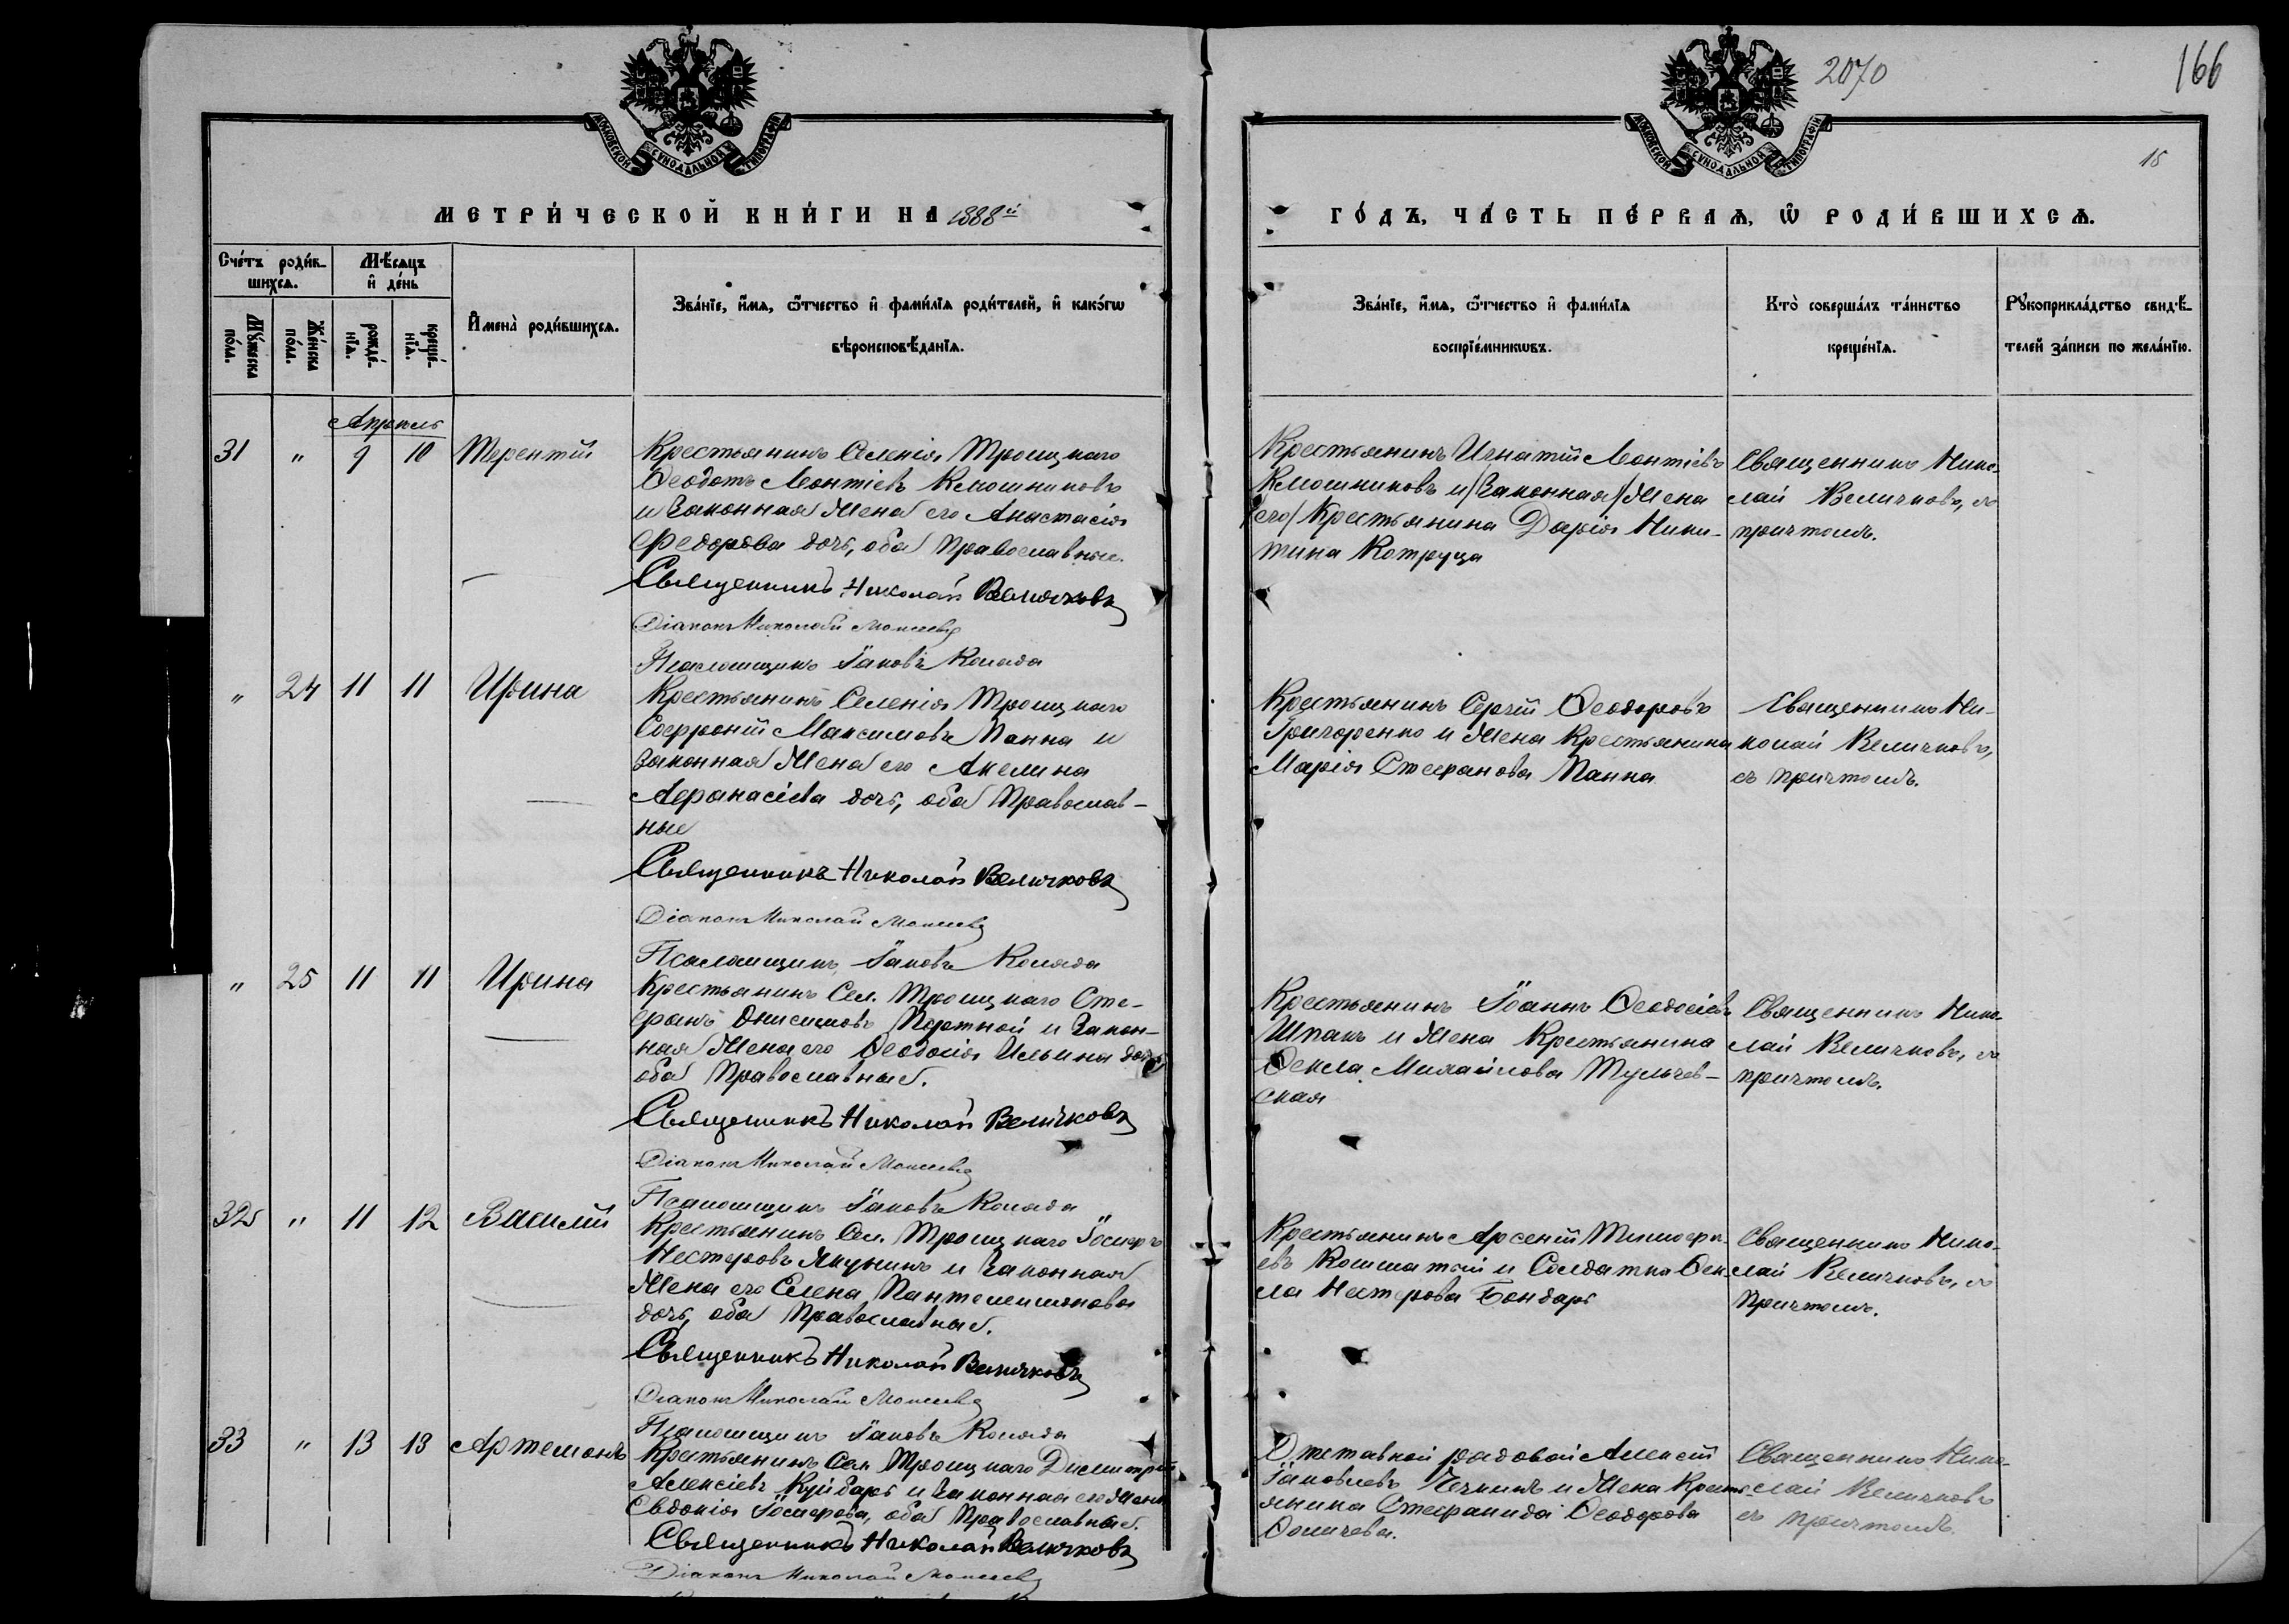 2070
166
15
МОСКОВСКОЙ СѴНОДАЛЬНОЙ ТИПОГРАФІИ
МОСКОВСКОЙ СѴНОДАЛЬНОЙ ТИПОГРАФІИ
МЕТРИ́ЧЕСКОЙ КНИ́ГИ НА 1888й
ГО́ДЪ, ЧА́СТЬ ПЕ́РВАѦ, Ѡ҆ РОДИ́ВШИХСѦ.
Сче́тъ роди́в-
шихсѧ.
Мꙋ́жеска по́ла.
Же́нска по́ла.
Мѣ́сѧцъ
и҆ де́нь
рожде́-
нїѧ.
креще́-
нїѧ.
И҆мена̀ роди́вшихсѧ.
Зва́нїе, и҆́мѧ, ѻ҆́тчество и҆ фами́лїѧ роди́телей, и҆ како́гѡ
вѣроисповѣ́данїѧ.
Зва́нїе, и҆́мѧ, ѻ҆́тчество и҆ фами́лїѧ
воспрїе́мникѡвъ.
Кто̀ соверша́лъ та́инство
креще́нїѧ.
Рꙋкоприкла́дство свидѣ́-
телей за́писи по жела́нїю.
Апрель
31 " 9 10 Терентій
Крестьянинъ Селенія Троицкаго
Ѳеодотъ Леонтіевъ Клюшниковъ
и законная жена его Анастасія
Федорова дочь, оба православные.
Священникъ Николай Величковъ
Діаконъ Николай Моисеевъ
Псаломщикъ Іаковъ Коляда
Крестьянинъ Игнатій Леонтіевъ
Клюшниковъ и /законная/ жена
/его/ Крестьянина Дарія Ники-
тина Котруца
Священникъ Нико-
лай Величковъ, съ
причтомъ.
" 24 11 11 Ирина
Крестьянинъ Селенія Троицкаго
Софроній Максимовъ Панна и
законная жена его Акелина
Афанасіева дочь, оба православ-
ные
Священникъ Николай Величковъ
Діаконъ Николай Моисеевъ
Псаломщикъ Іаковъ Коляда
Крестьянинъ Сергій Ѳеодоровъ
Григоренко и жена Крестьянина
Марія Стефанова Панна
Священникъ Ни-
колай Величковъ,
съ причтомъ.
" 25 11 11 Ирина
Крестьянинъ Сел. Троицкаго Сте-
фанъ Онисимовъ Портной и закон-
ная жена его Ѳеодосія Ильина дочь
оба православные.
Священникъ Николай Величковъ
Діаконъ Николай Моисеевъ
Псаломщикъ Іаковъ Коляда
Крестьянинъ Іоаннъ Ѳеодосіевъ
Шпакъ и жена Крестьянина
Ѳекла Михайлова Тульчев-
ская
Священникъ Нико-
лай Величковъ, съ
причтомъ.
32 " 11 12 Василій
Крестьянинъ Сел. Троицкаго Іосифъ
Нестеровъ Якунинъ и законная
жена его Елена Пантелеимонова
дочь, оба православные.
Священникъ Николай Величковъ
Діаконъ Николай Моисеевъ
Псаломщикъ Іаковъ Коляда
Крестьянинъ Арсеній Тимофе-
евъ и Солдатка Ѳек-
ла Нестерова Бондарь
Священникъ Нико-
лай Величковъ, съ
причтомъ.
33 " 13 13 Артемонъ
Крестьянинъ Сел. Троицкаго Димитрій
Алексіевъ Куйбарь и законная его жена
Евдокія Іосифова, оба православные.
Священникъ Николай Величковъ
Діаконъ Николай Моисеевъ
Отставной рядовой Алексій
Іаковлевъ и жена Крестья-
янина Стефанида Ѳеодорова
Священникъ Нико-
лай Величковъ
съ причтомъ.